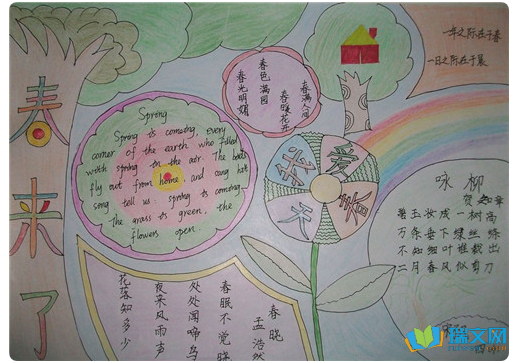 春来了
一年之际在于春
一日之际在于晨
春满人间
春暖花开
春色满园
春光明媚
Sprong
Sprong is comeing, every
corner of the earth who filled
with sprong in the air. The birds
fly out from home and sang hat
song tell us spring is comeing.
The grass is green. the
flowers open
我爱春天
咏柳
贺知章
碧玉妆成一树高
万条垂下绿丝绦
不知细叶谁裁出
二月春风似剪刀
春晓
孟浩然
春眠不觉晓
处处闻啼鸟
夜来风雨声
花落知多少
瑞文网